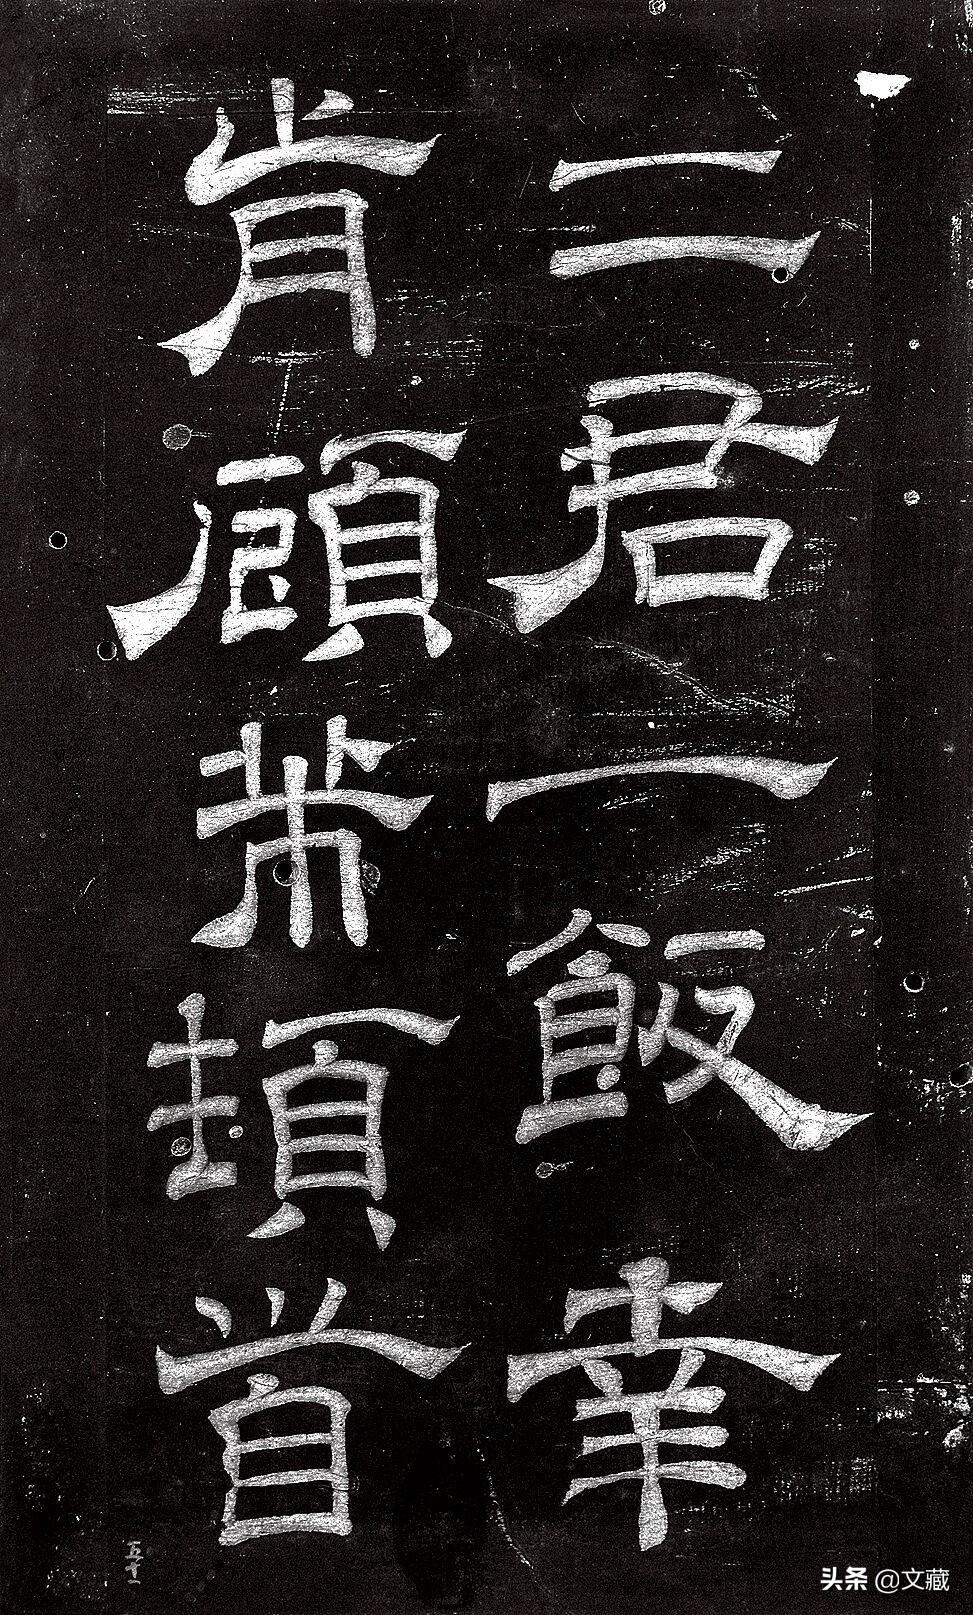 二君一飯幸
肯頋芾頓首
五十一
头条 @文藏